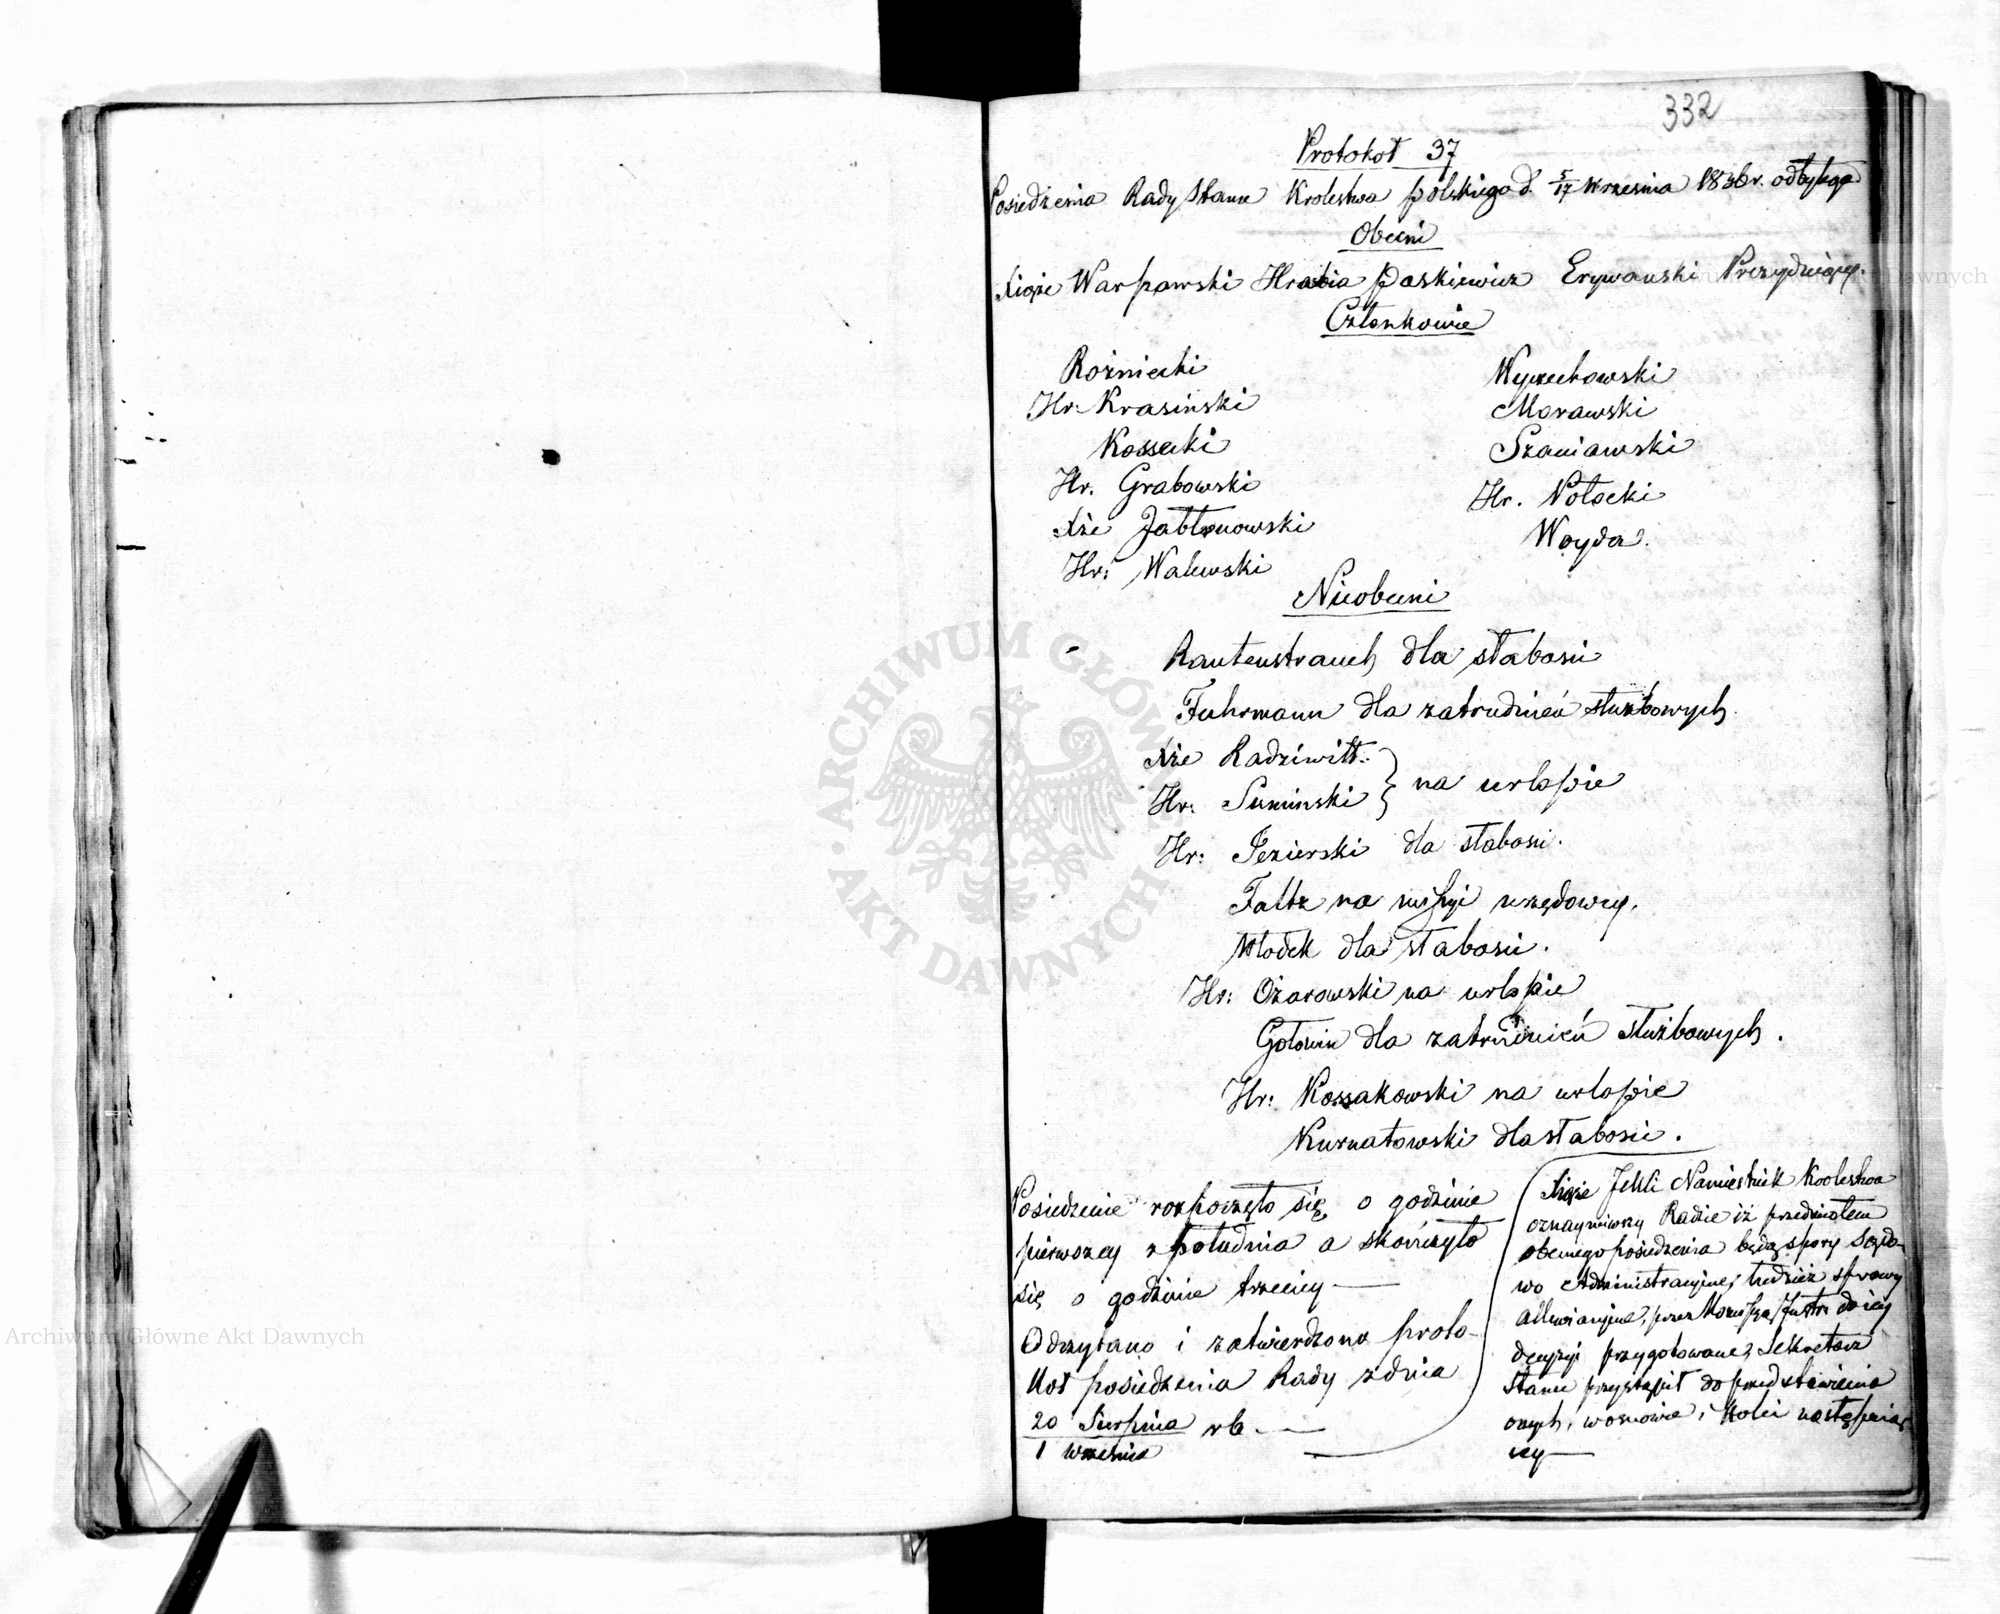 332
Protokoł 37
Posiedzenia Rady Stanu Krolestwa polskiego d. 5/17 Wrzesnia 1836 r. odbytego
Obecni
Xiąże Warszawski Hrabia Paskiewicz Erywanski Prezydujący.
Członkowie
Rożniecki
Hr: Krasiński
Kossecki
Hr. Grabowski
Xże Jabłonowski
Hr: Walewski
Wyczechowski
Morawski
Szaniawski
Hr. Potocki
Woyda.
Nieobecni
Rautenstrauch dla słabości
Fuhrmann dla zatrudnień służbowych.
Xże Radziwiłł
Hr: Suminski } na urlopie
Hr: Jezierski dla słabości.
Faltz na missyi urzędowey.
Włodek dla słabości.
Hr: Ożarowski na urlopie
Gołowin dla zatrudnień służbowych.
Hr: Kossakowski na urlopie
Kurnatowski dla słabości.
Posiedzenie rozpoczęło się o godzinie
pierwszey z południa a skończyło
się o godzinie trzeciey —
Odczytano i zatwierdzono proto-
koł posiedzenia Rady z dnia
20 Sierpnia rb. —
1 Września
Xiąże Namiestnik Krolestwa
oznaymiwszy Radzie iż przedmiotem
obecnego posiedzenia będą spory Sądo-
wo Administracyjne, tudzież sprawy
przez
decyzyi przygotowane, Sekretarz
Stanu przystąpił do przedstawienia
onych, w osnowie i kolei następuią-
cey —
Archiwum Główne Akt Dawnych
ARCHIWUM GŁÓWNE AKT DAWNYCH